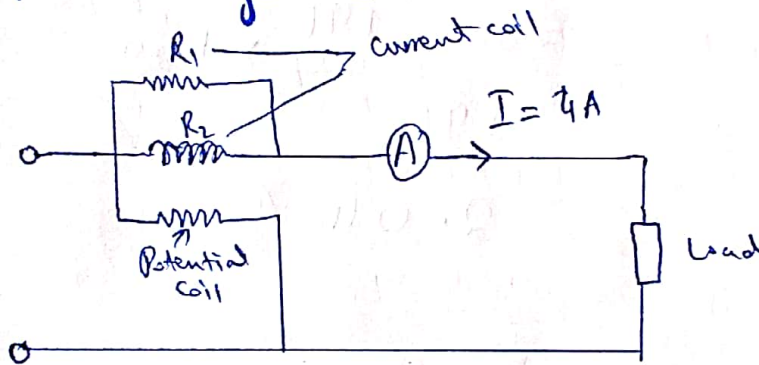 R1
Current coil
R2
A
I = 4A
Potential
coil
Load